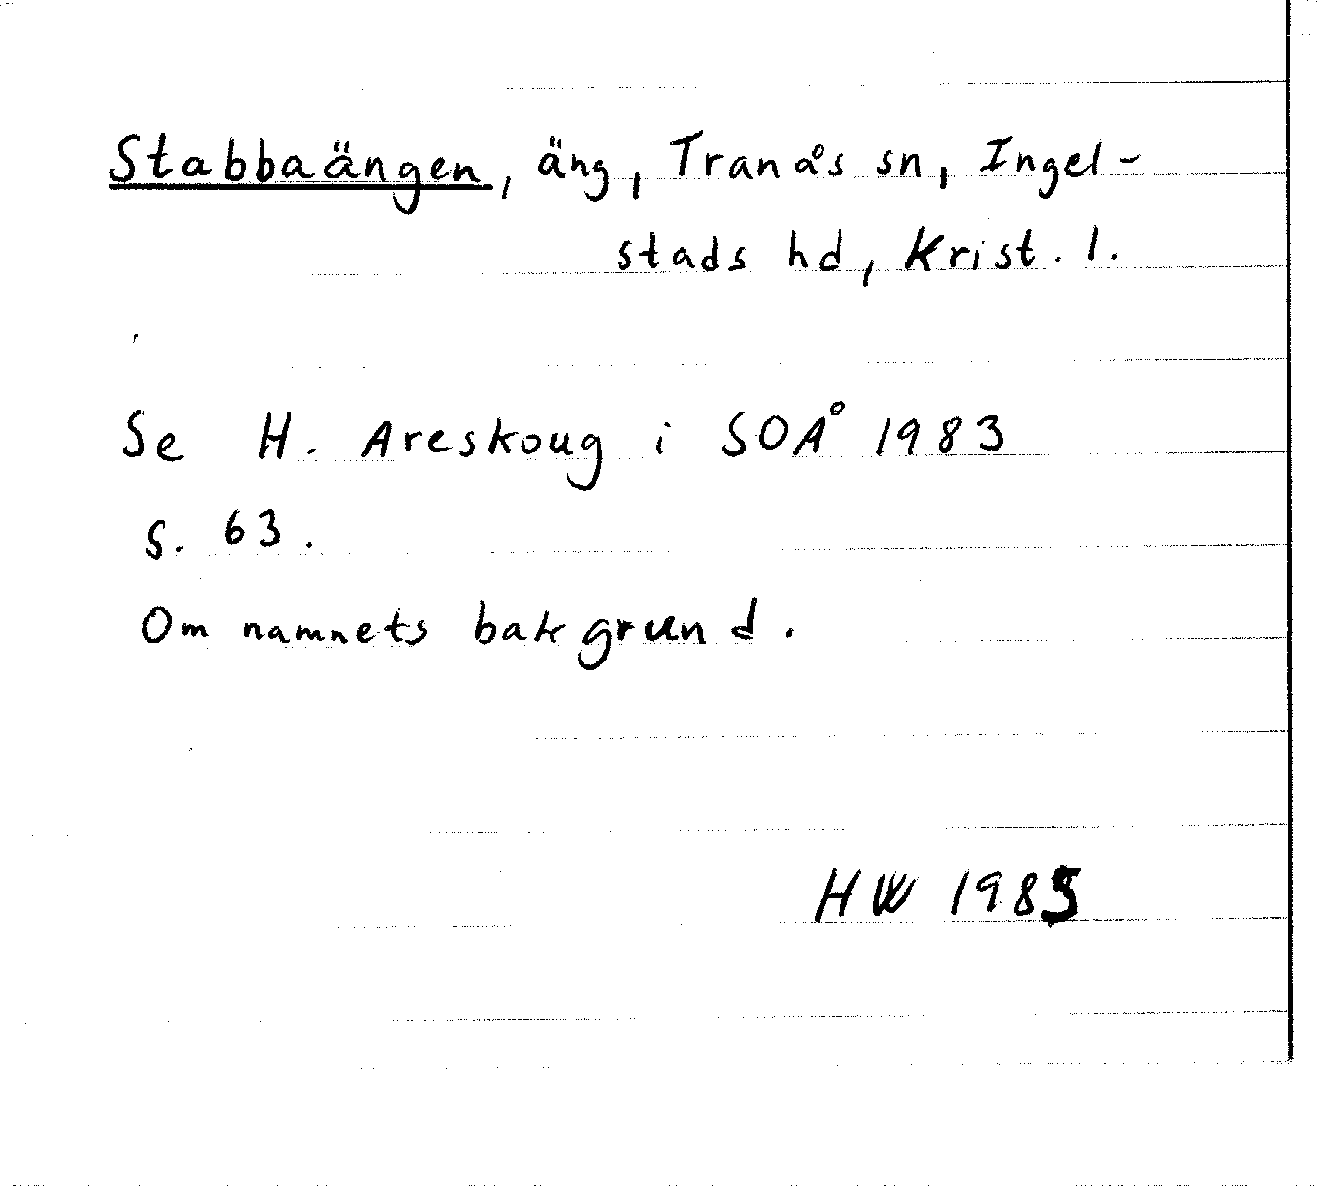 Stabbaängen, äng, Tranås sn, Ingel-
stads hd, Krist. l.
Se H. Areskoug i SOÅ 1983
s. 63.
Om namnets bakgrund.
HW 1985